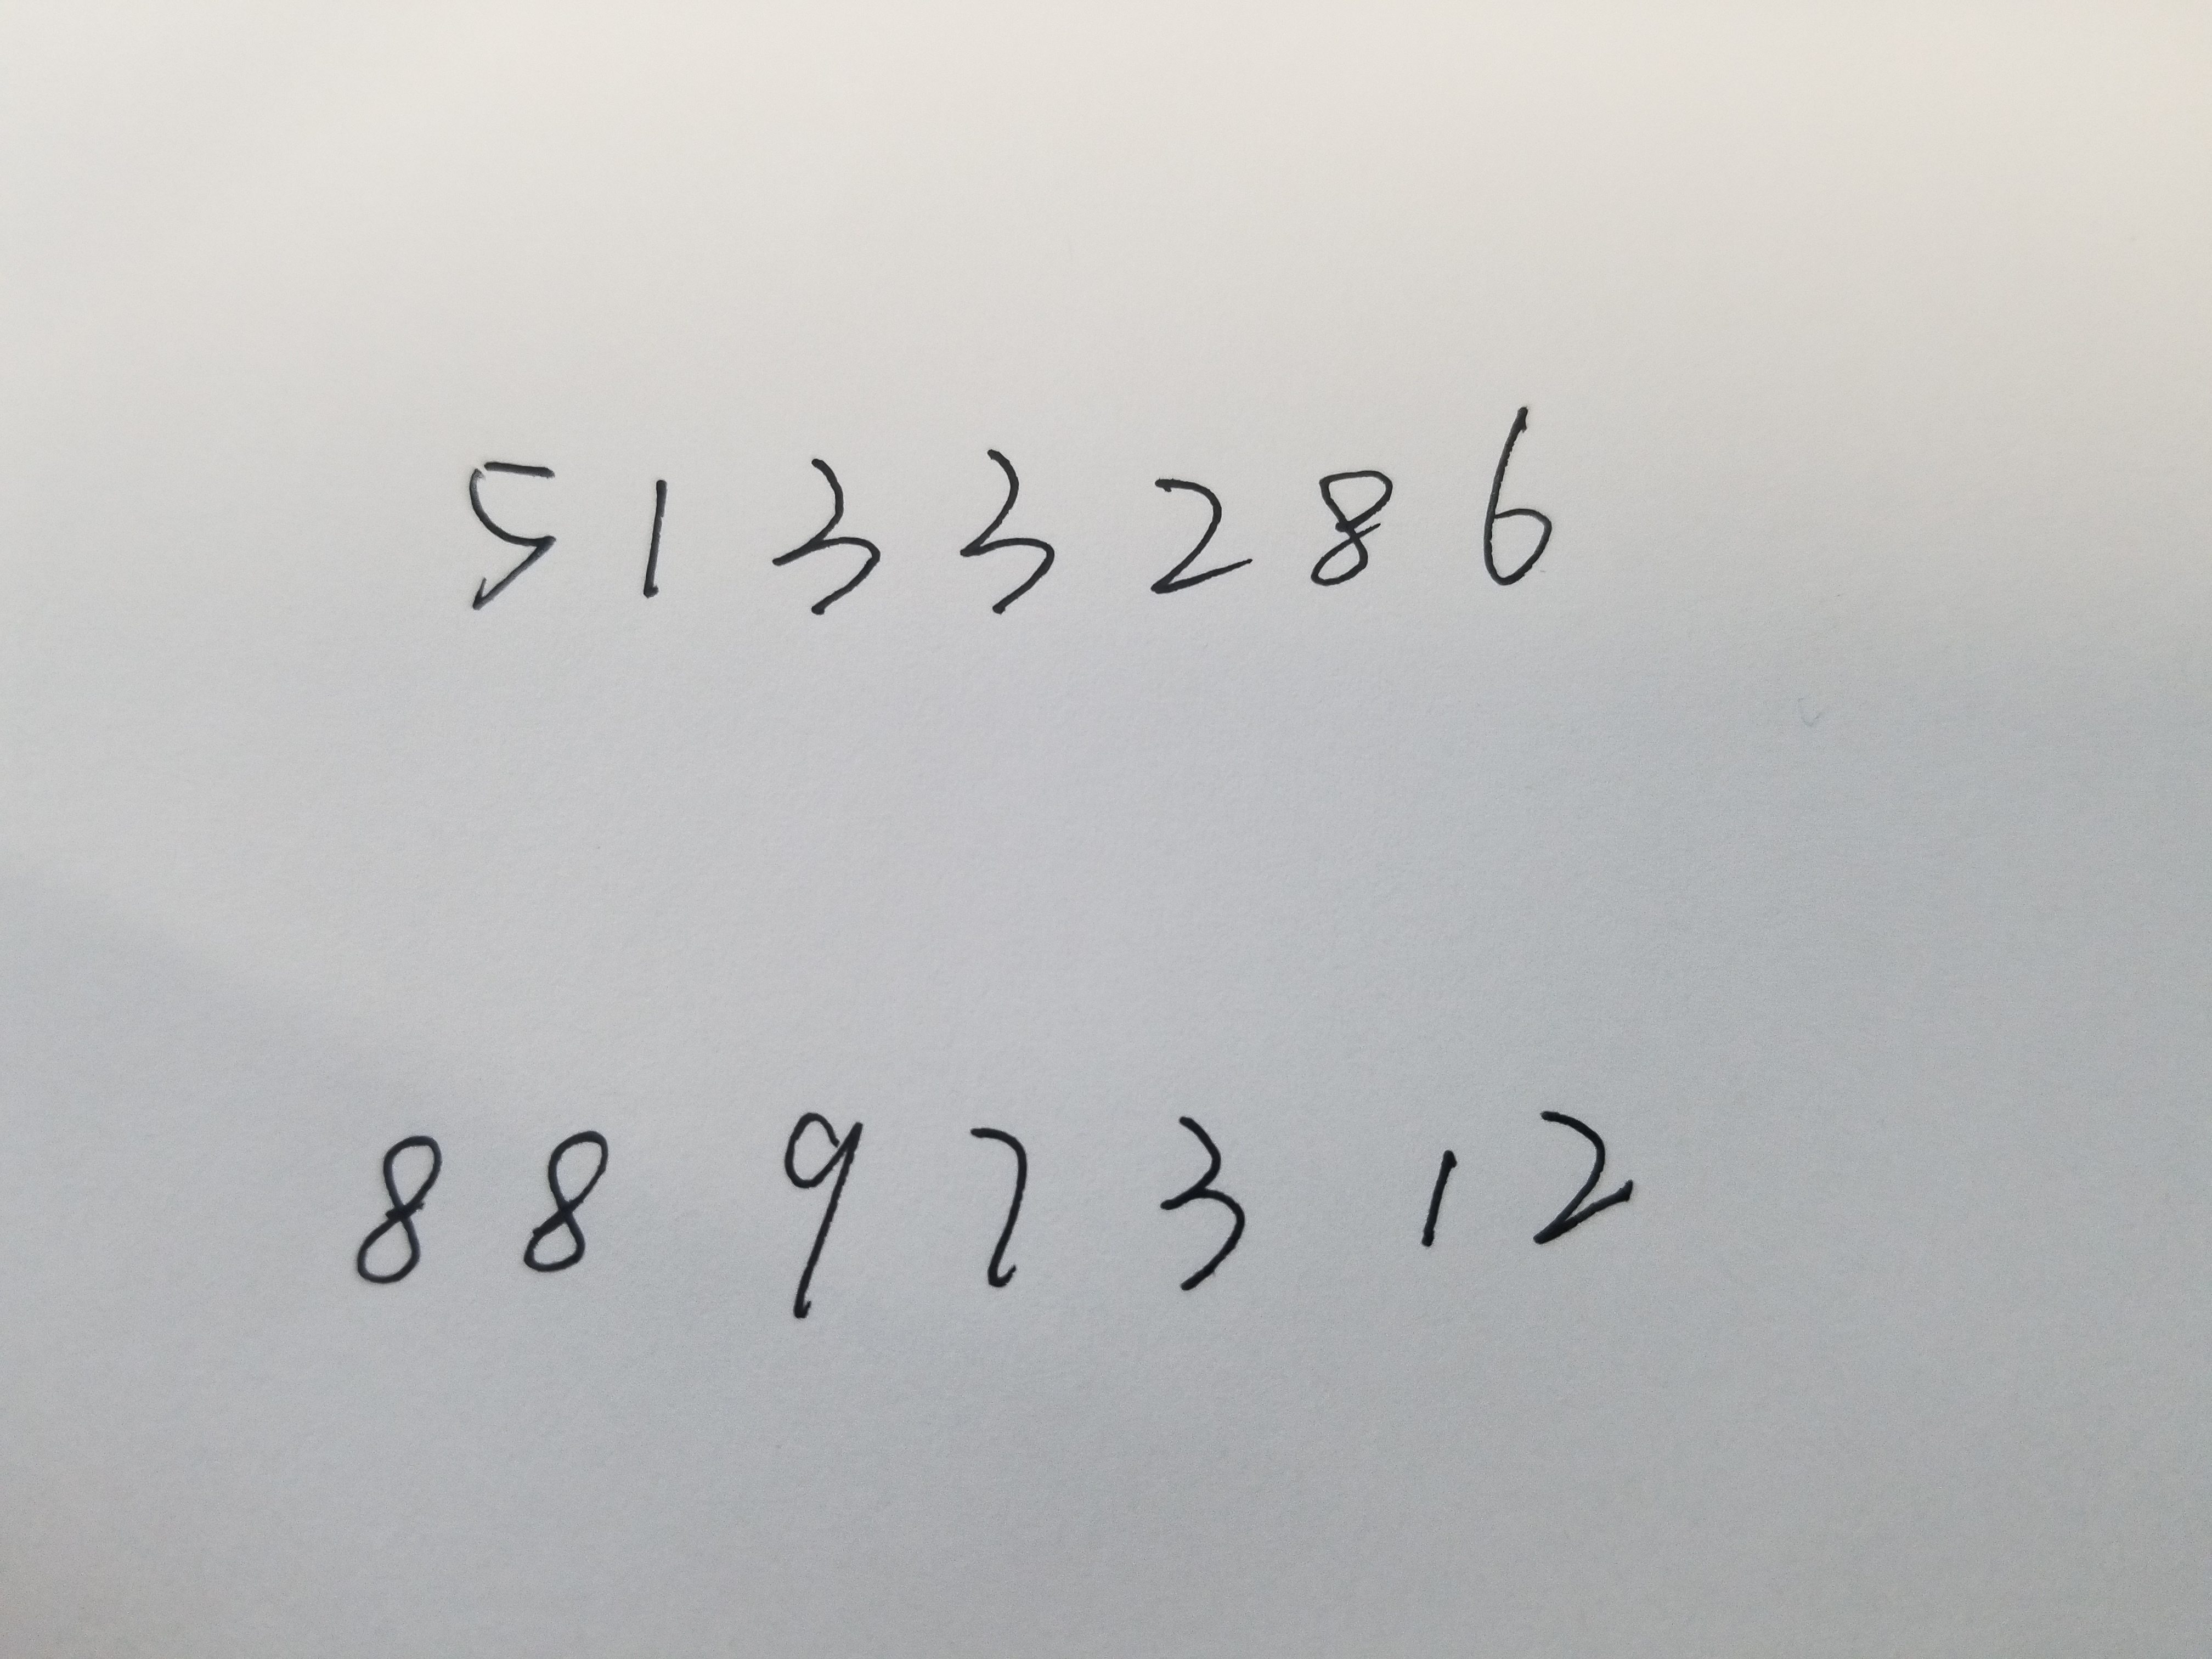 5133286
8897312